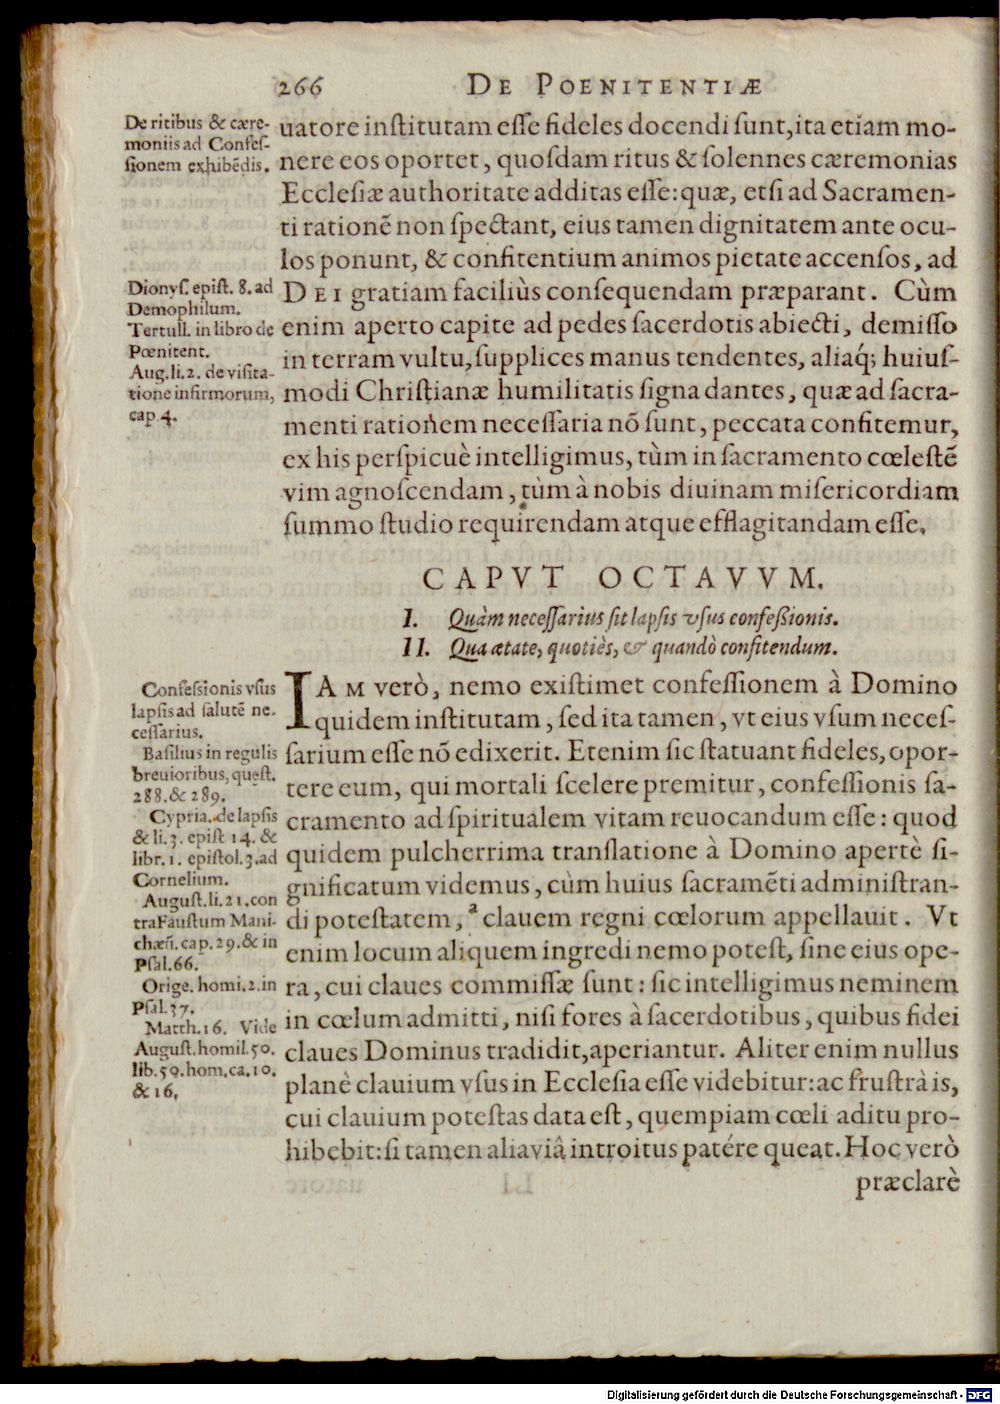 266 DE POENITENTIÆ
De ritibus & cære-
moniis ad Confes-
sionem exhibēdis.
uatore institutam esse fideles docendi sunt, ita etiam mo-
nere eos oportet, quosdam ritus & solennes cæremonias
Ecclesiæ authoritate additas esse: quæ, etsi ad Sacramen-
ti rationē non spectant, eius tamen dignitatem ante ocu-
los ponunt, & confitentium animos pietate accensos, ad
DEI gratiam faciliùs consequendam præparant. Cùm
enim aperto capite ad pedes sacerdotis abiecti, demisso
in terram vultu, supplices manus tendentes, aliaq; huius-
modi Christianæ humilitatis signa dantes, quæ ad sacra-
menti rationem necessaria nō sunt, peccata confitemur,
ex his perspicuè intelligimus, tùm in sacramento cœlestē
vim agnoscendam, tùm à nobis diuinam misericordiam
summo studio requirendam atque efflagitandam esse.
Dionys. epist. 8. ad
Demophilum.
Tertull. in libro de
Pœnitent.
Aug. li. 2. de visita-
tione infirmorum,
cap 4.
CAPVT OCTAVVM.
I. Quàm necessarius sit lapsis vsus confeßionis.
II. Qua ætate, quotiès, & quandò confitendum.
IAM verò, nemo existimet confessionem à Domino
quidem institutam, sed ita tamen, vt eius vsum neces-
sarium esse nō edixerit. Etenim sic statuant fideles, opor-
tere eum, qui mortali scelere premitur, confessionis sa-
cramento ad spiritualem vitam reuocandum esse: quod
quidem pulcherrima translatione à Domino apertè si-
gnificatum videmus, cùm huius sacramēti administran-
di potestatem, ª clauem regni cœlorum appellauit. Vt
enim locum aliquem ingredi nemo potest, sine eius ope-
ra, cui claues commissæ sunt: sic intelligimus neminem
in cœlum admitti, nisi fores à sacerdotibus, quibus fidei
claues Dominus tradidit, aperiantur. Aliter enim nullus
planè clauium vsus in Ecclesia esse videbitur: ac frustrà is,
cui clauium potestas data est, quempiam cœli aditu pro-
hibebit: si tamen alia viâ introitus patére queat. Hoc verò
præclarè
Confessionis vsus
lapsis ad salutē ne-
cessarius.
Basilius in regulis
breuioribus, quęst.
288. & 289.
Cypria. de lapsis
& li. 3. epist 14. &
libr. 1. epistol. 3. ad
Cornelium.
August. li. 21. con
tra Faustum Mani-
chæū. cap. 29. & in
Psal. 66.
Orige. homi. 2. in
Psal. 37.
Matth. 16. Vide
August. homil. 50.
lib. 50. hom. ca. 10.
& 16.
Digitalisierung gefördert durch die Deutsche Forschungsgemeinschaft - DFG